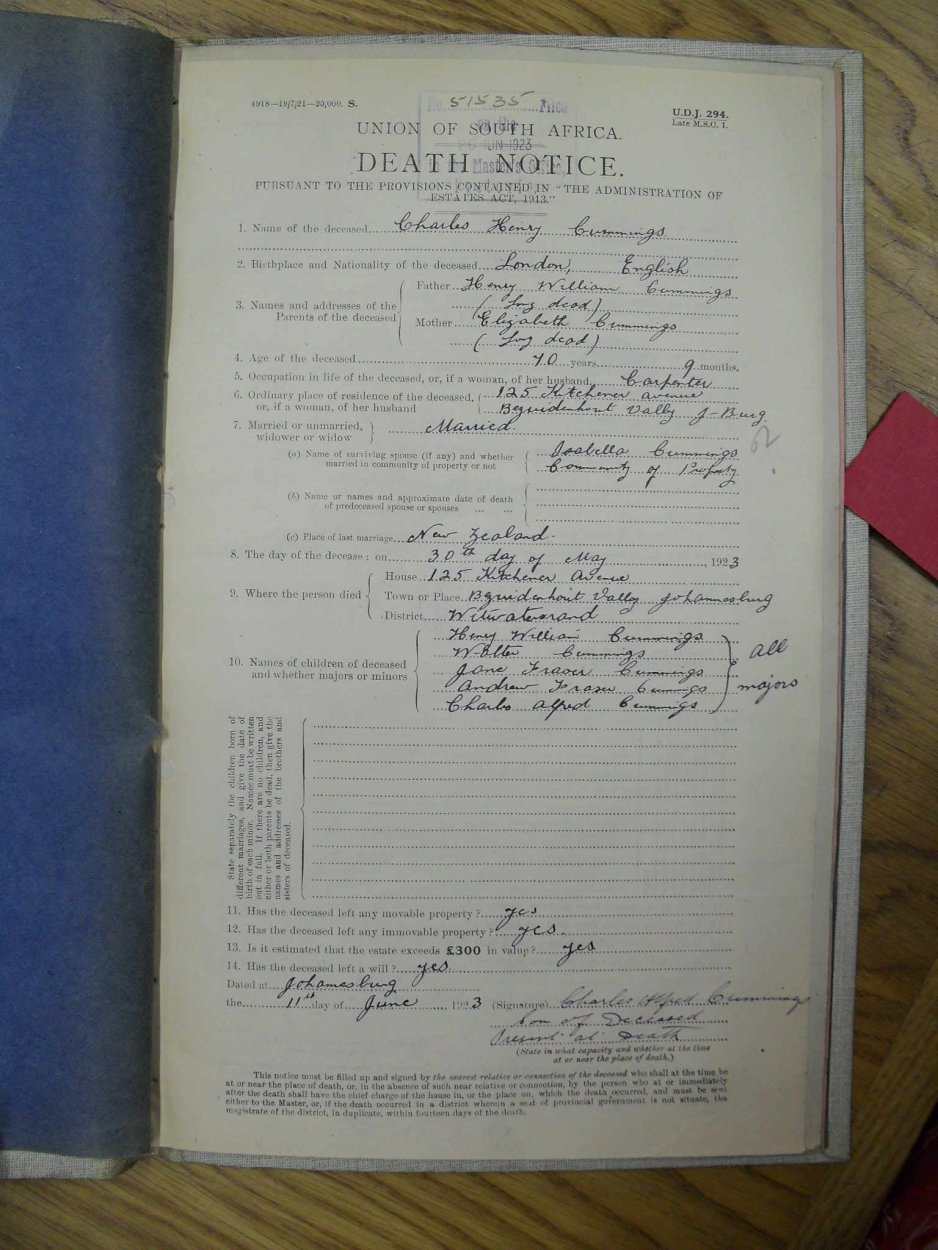 1918—19/7/21—20,000. S.
No. 51535 Filed
U.D.J. 294.
Late M.S.C. 1.
on the
JUN 1923
Master's
UNION OF SOUTH AFRICA.
DEATH NOTICE.
PURSUANT TO THE PROVISIONS CONTAINED IN "THE ADMINISTRATION OF
ESTATES ACT, 1913."
1. Name of the deceased Charles Henry Cummings
2. Birthplace and Nationality of the deceased London, English
3. Names and addresses of the Parents of the deceased
Father Henry William Cummings
(Long dead)
Mother Elizabeth Cummings
(Long dead)
4. Age of the deceased 70 years 9 months.
5. Occupation in life of the deceased, or, if a woman, of her husband Carpenter
6. Ordinary place of residence of the deceased, 125 Kitchener Avenue
or, if a woman, of her husband Bezuidenhout Vally J-Burg
7. Married or unmarried, widower or widow Married
(a) Name of surviving spouse (if any) and whether Isabella Cummings
married in community of property or not Community of Property
(b) Name or names and approximate date of death
of predeceased spouse or spouses ... ...
(c) Place of last marriage New Zealand.
8. The day of the decease: on 30th day of May 1923
9. Where the person died
House 125 Kitchener Avenue
Town or Place Bezuidenhout Vally Johannesburg
District Witwatersrand
10. Names of children of deceased and whether majors or minors
Henry William Cummings
Walter Cummings
Jane Fraser Cummings
Andrew Fraser Cummings
Charles Alfred Cummings
all
majors
State separately the children born of
different marriages, and give the date of
birth of each minor. Names must be written
out in full. If there are no children, and
either or both parents be dead, then give the
names and addresses of the brothers and
sisters of deceased.
11. Has the deceased left any movable property? yes
12. Has the deceased left any immovable property? yes.
13. Is it estimated that the estate exceeds £300 in value? yes
14. Has the deceased left a will? yes.
Dated at Johanesburg
the 11th day of June 1923 (Signature) Charles Alfred Cummings
Son of Deceased
Present at Death
(State in what capacity and whether at the time
at or near the place of death.)
This notice must be filled up and signed by the nearest relative or connection of the deceased who shall at the time be
at or near the place of death, or, in the absence of such near relative or connection, by the person who at or immediately
after the death shall have the chief charge of the house in, or the place on, which the death occurred, and must be sent
either to the Master, or, if the death occurred in a district wherein a seat of provincial government is not situate, the
magistrate of the district, in duplicate, within fourteen days of the death.